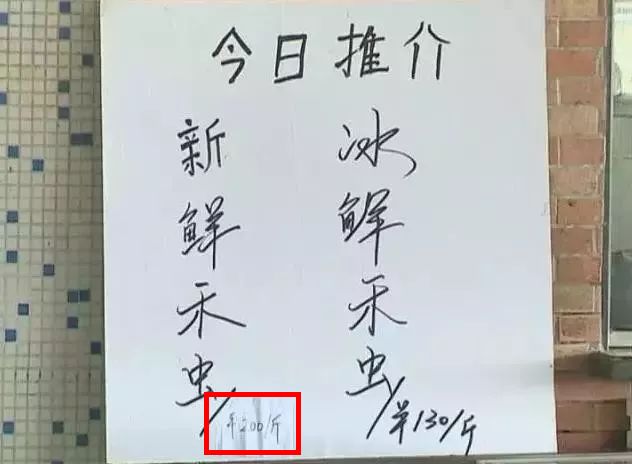 今日推介
新鲜禾虫/¥200/斤
冰鲜禾虫/¥130/斤